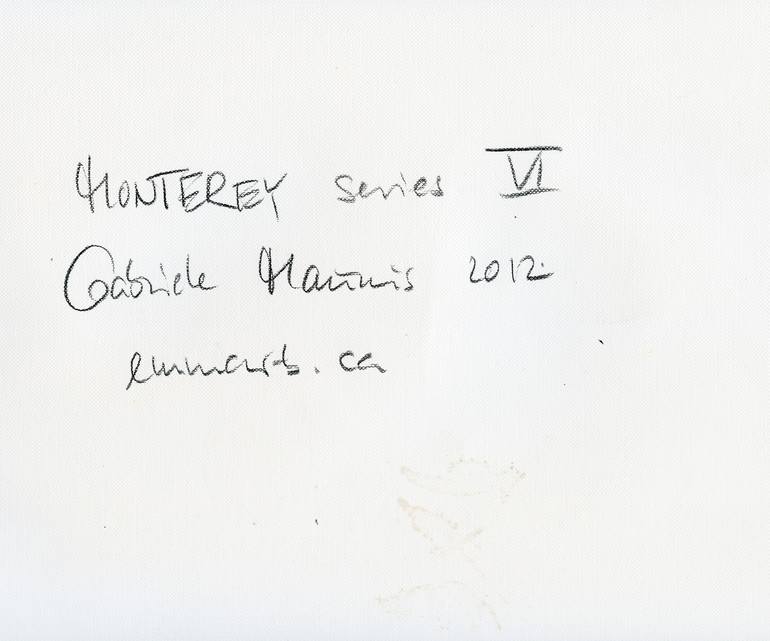 MONTEREY series VI
Gabriele Maurus 2012
emmarts.ca